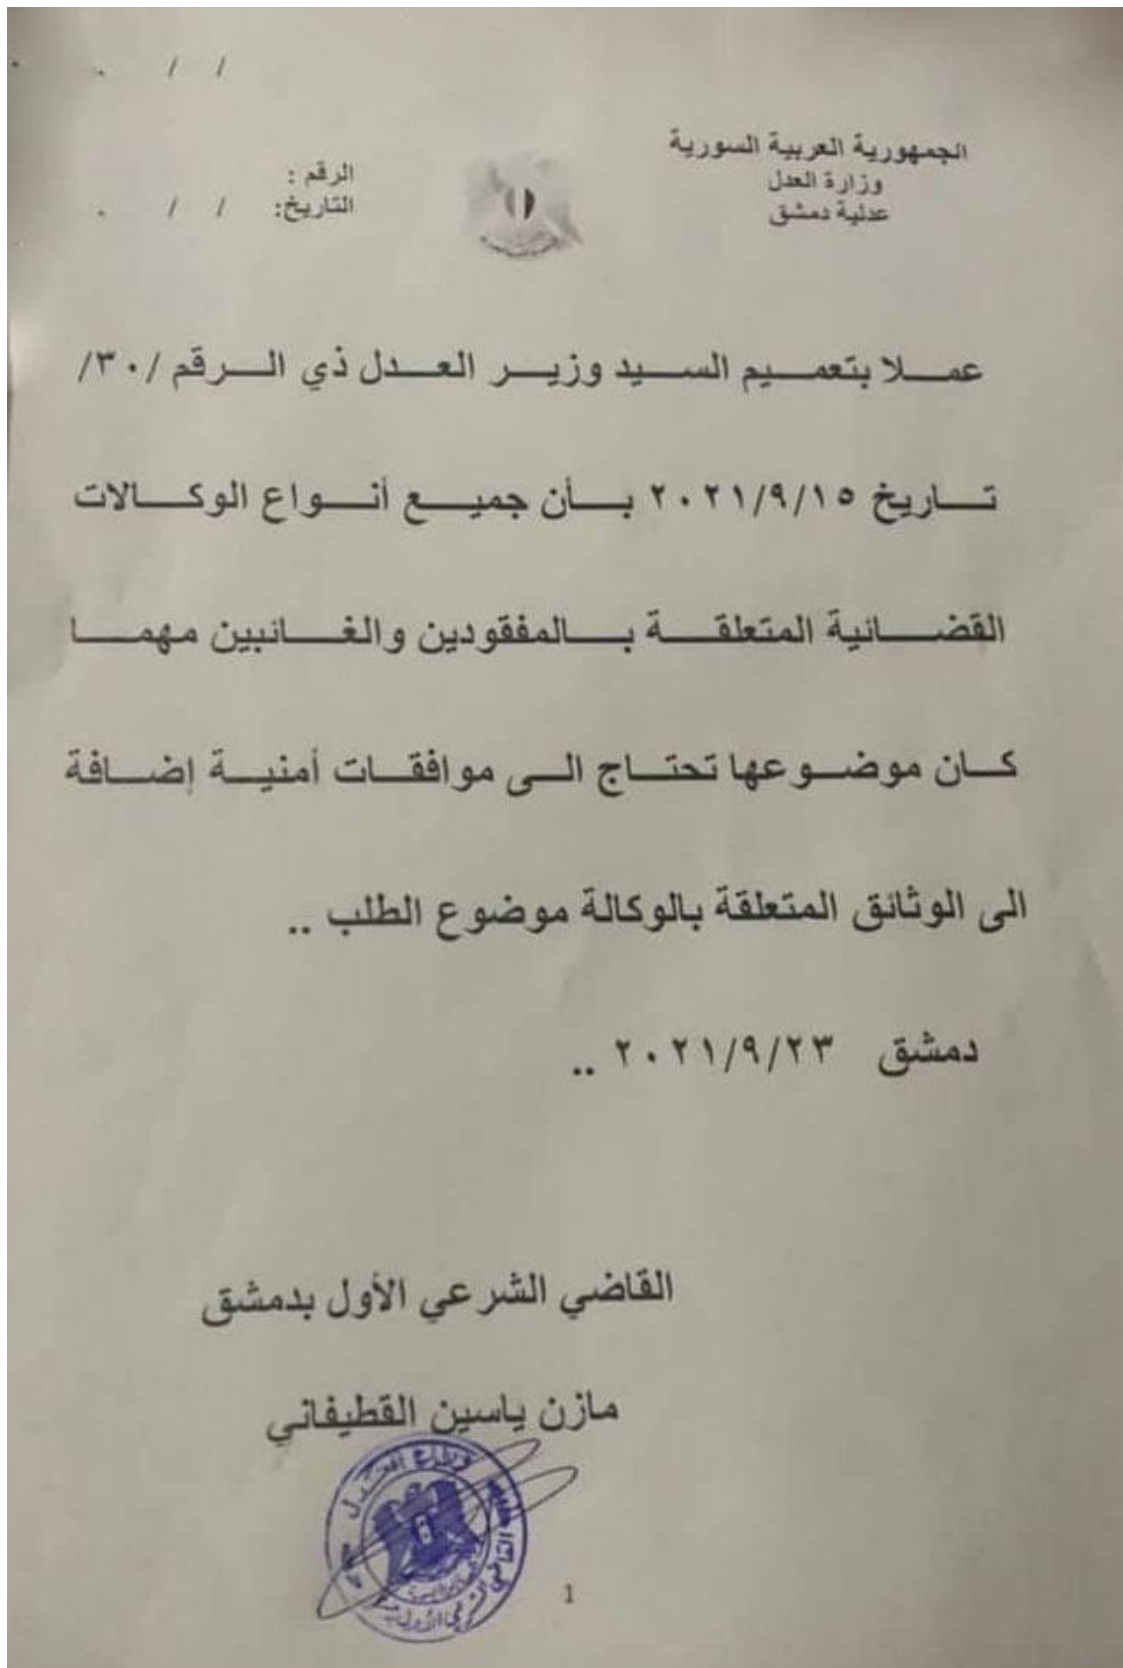 / /
الجمهورية العربية السورية
وزارة العدل
عدلية دمشق
الرقم :
التاريخ: / /
عمـلا بتعمـيم السـيد وزيـر العـدل ذي الـرقم /٣٠/
تـاريخ ٢٠٢١/٩/١٥ بـأن جميـع أنـواع الوكـالات
القضـائية المتعلقـة بـالمفقودين والغـائبين مهمـا
كـان موضـوعها تحتـاج الـى موافقـات أمنيـة إضـافة
الى الوثائق المتعلقة بالوكالة موضوع الطلب ..
دمشق ٢٠٢١/٩/٢٣ ..
القاضي الشرعي الأول بدمشق
مازن ياسين القطيفاني
وزارة العدل
القاضي الشرعي الأول
1